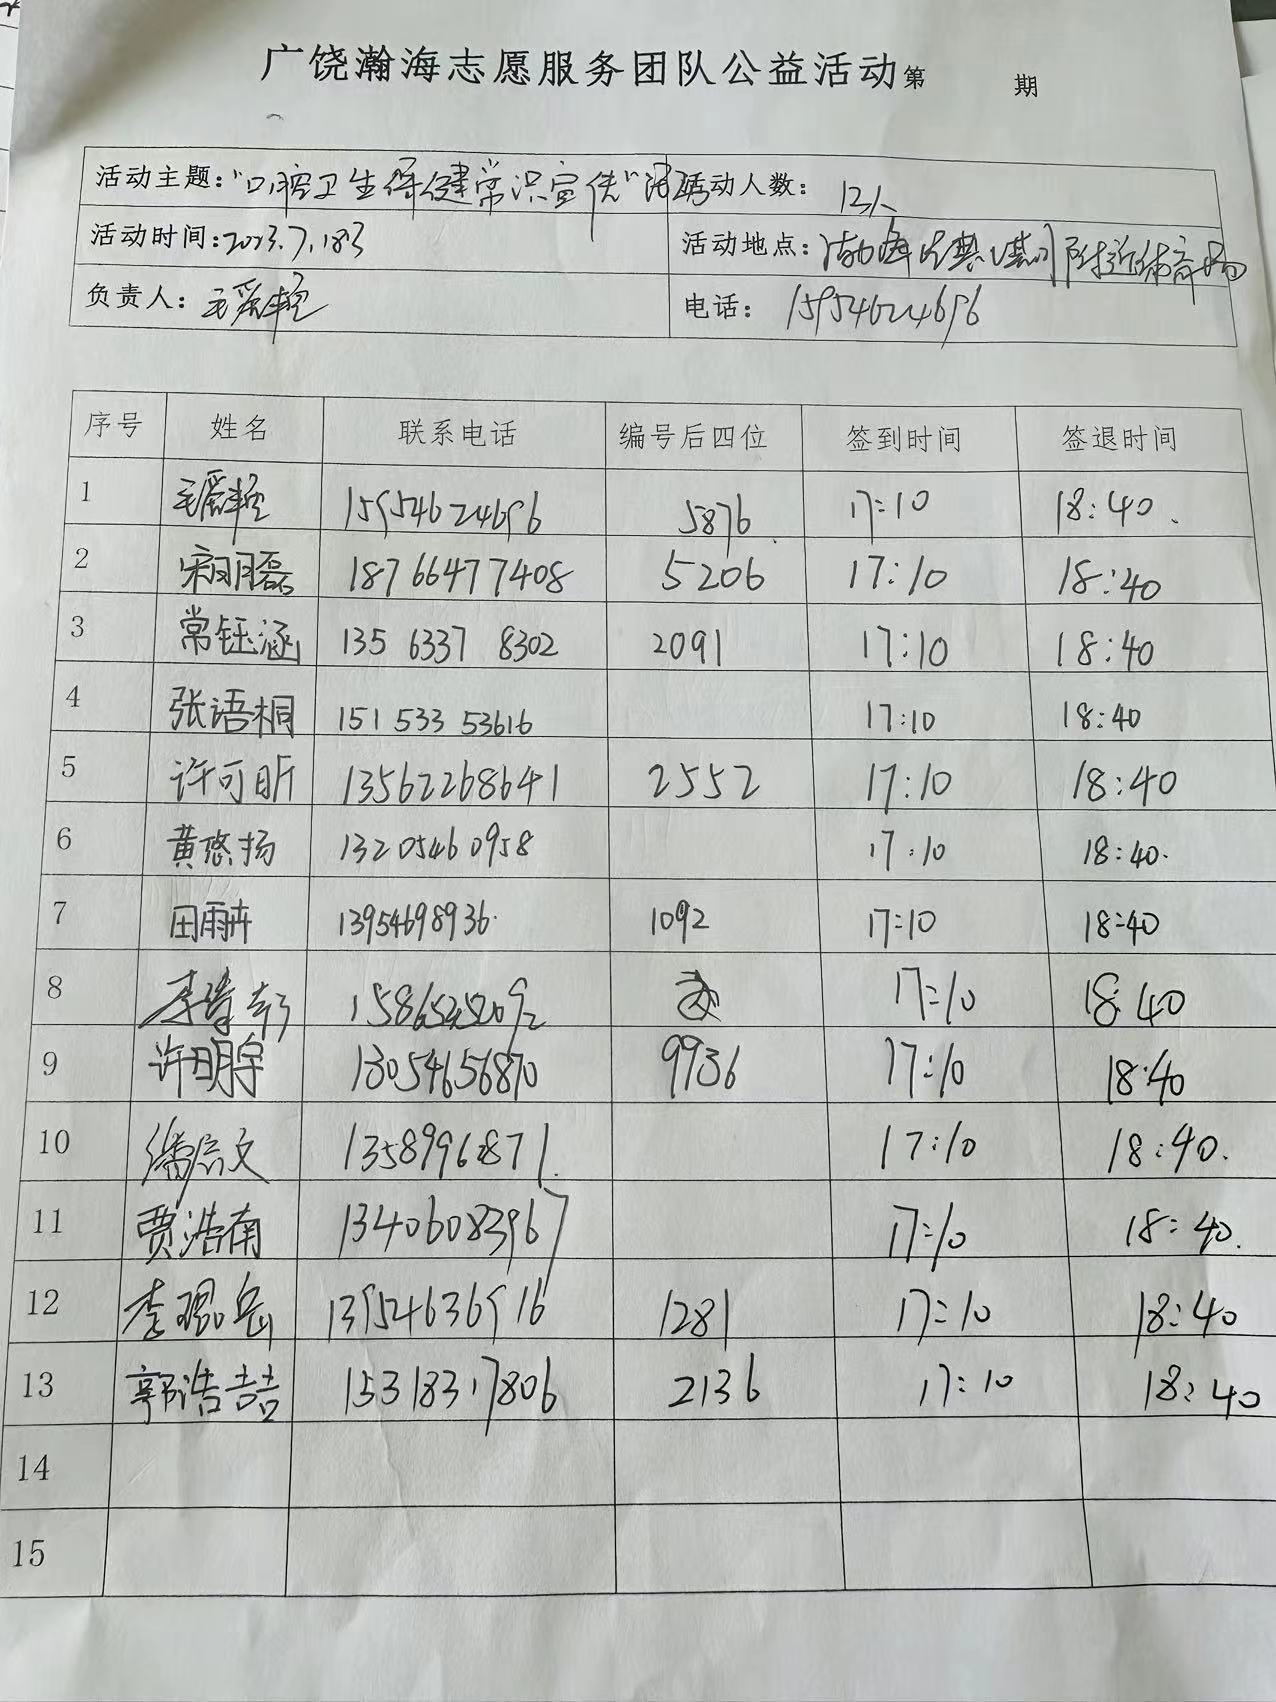 广饶瀚海志愿服务团队公益活动第 期
活动主题："口腔卫生保健常识宣传"活动 活动人数：12人
活动时间：2023.7.18日 活动地点：附近体育场
负责人：毛爱艳 电话：15954624696
序号 姓名 联系电话 编号后四位 签到时间 签退时间
1 毛爱艳 15954624696 5876 17:10 18:40
2 宋明磊 18766477408 5206 17:10 18:40
3 常钰涵 135 6337 8302 2091 17:10 18:40
4 张语桐 151 533 53616 17:10 18:40
5 许可昕 13562268641 2552 17:10 18:40
6 黄悠扬 13205460958 17:10 18:40
7 田雨卉 13954698936 1092 17:10 18:40
8 李 17:10 18:40
9 许明宇 13054656870 9936 17:10 18:40
10 潘启文 17:10 18:40
11 贾浩南 13406083967 17:10 18:40
12 李琨岳 13954636916 1281 17:10 18:40
13 郭浩喆 15318317806 2136 17:10 18:40
14
15